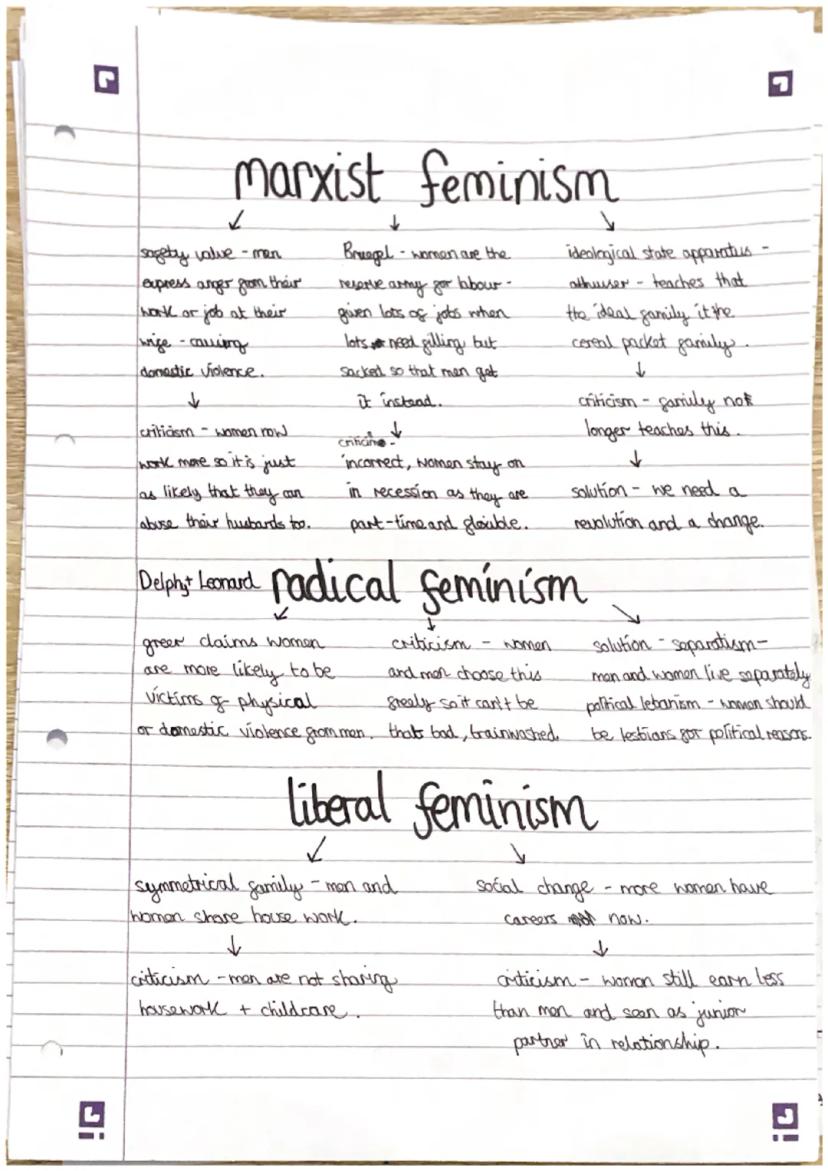 marxist feminism
safety valve - men
express anger from their
work or job at their
wife - causing
domestic violence.
criticism - women now
work more so it is just
as likely that they can
abuse their husbands too.
Bruegel - women are the
reserve army for labour -
given lots of jobs when
lots need filling but
sacked so that men get
it instead.
incorrect, women stay on
in recession as they are
part-time and flexible.
ideological state apparatus -
althuser - teaches that
the ideal family it the
cereal packet family.
criticism - family not
longer teaches this.
solution - we need a
revolution and a change.
Delphy+ Leonard radical feminism
greer claims women
are more likely to be
victims of physical
or domestic violence from men.
criticism - women
and men choose this
freely so it can't be
thats bad, brainwashed.
solution - separatism -
men and women live separately
political lebanism - woman should
be lesbians for political reasons.
liberal feminism
symmetrical family - men and
women share house work.
criticism - men are not sharing
housework + childcare.
social change - more women have
careers now.
criticism - women still earn less
than men and seen as junior
partner in relationship.